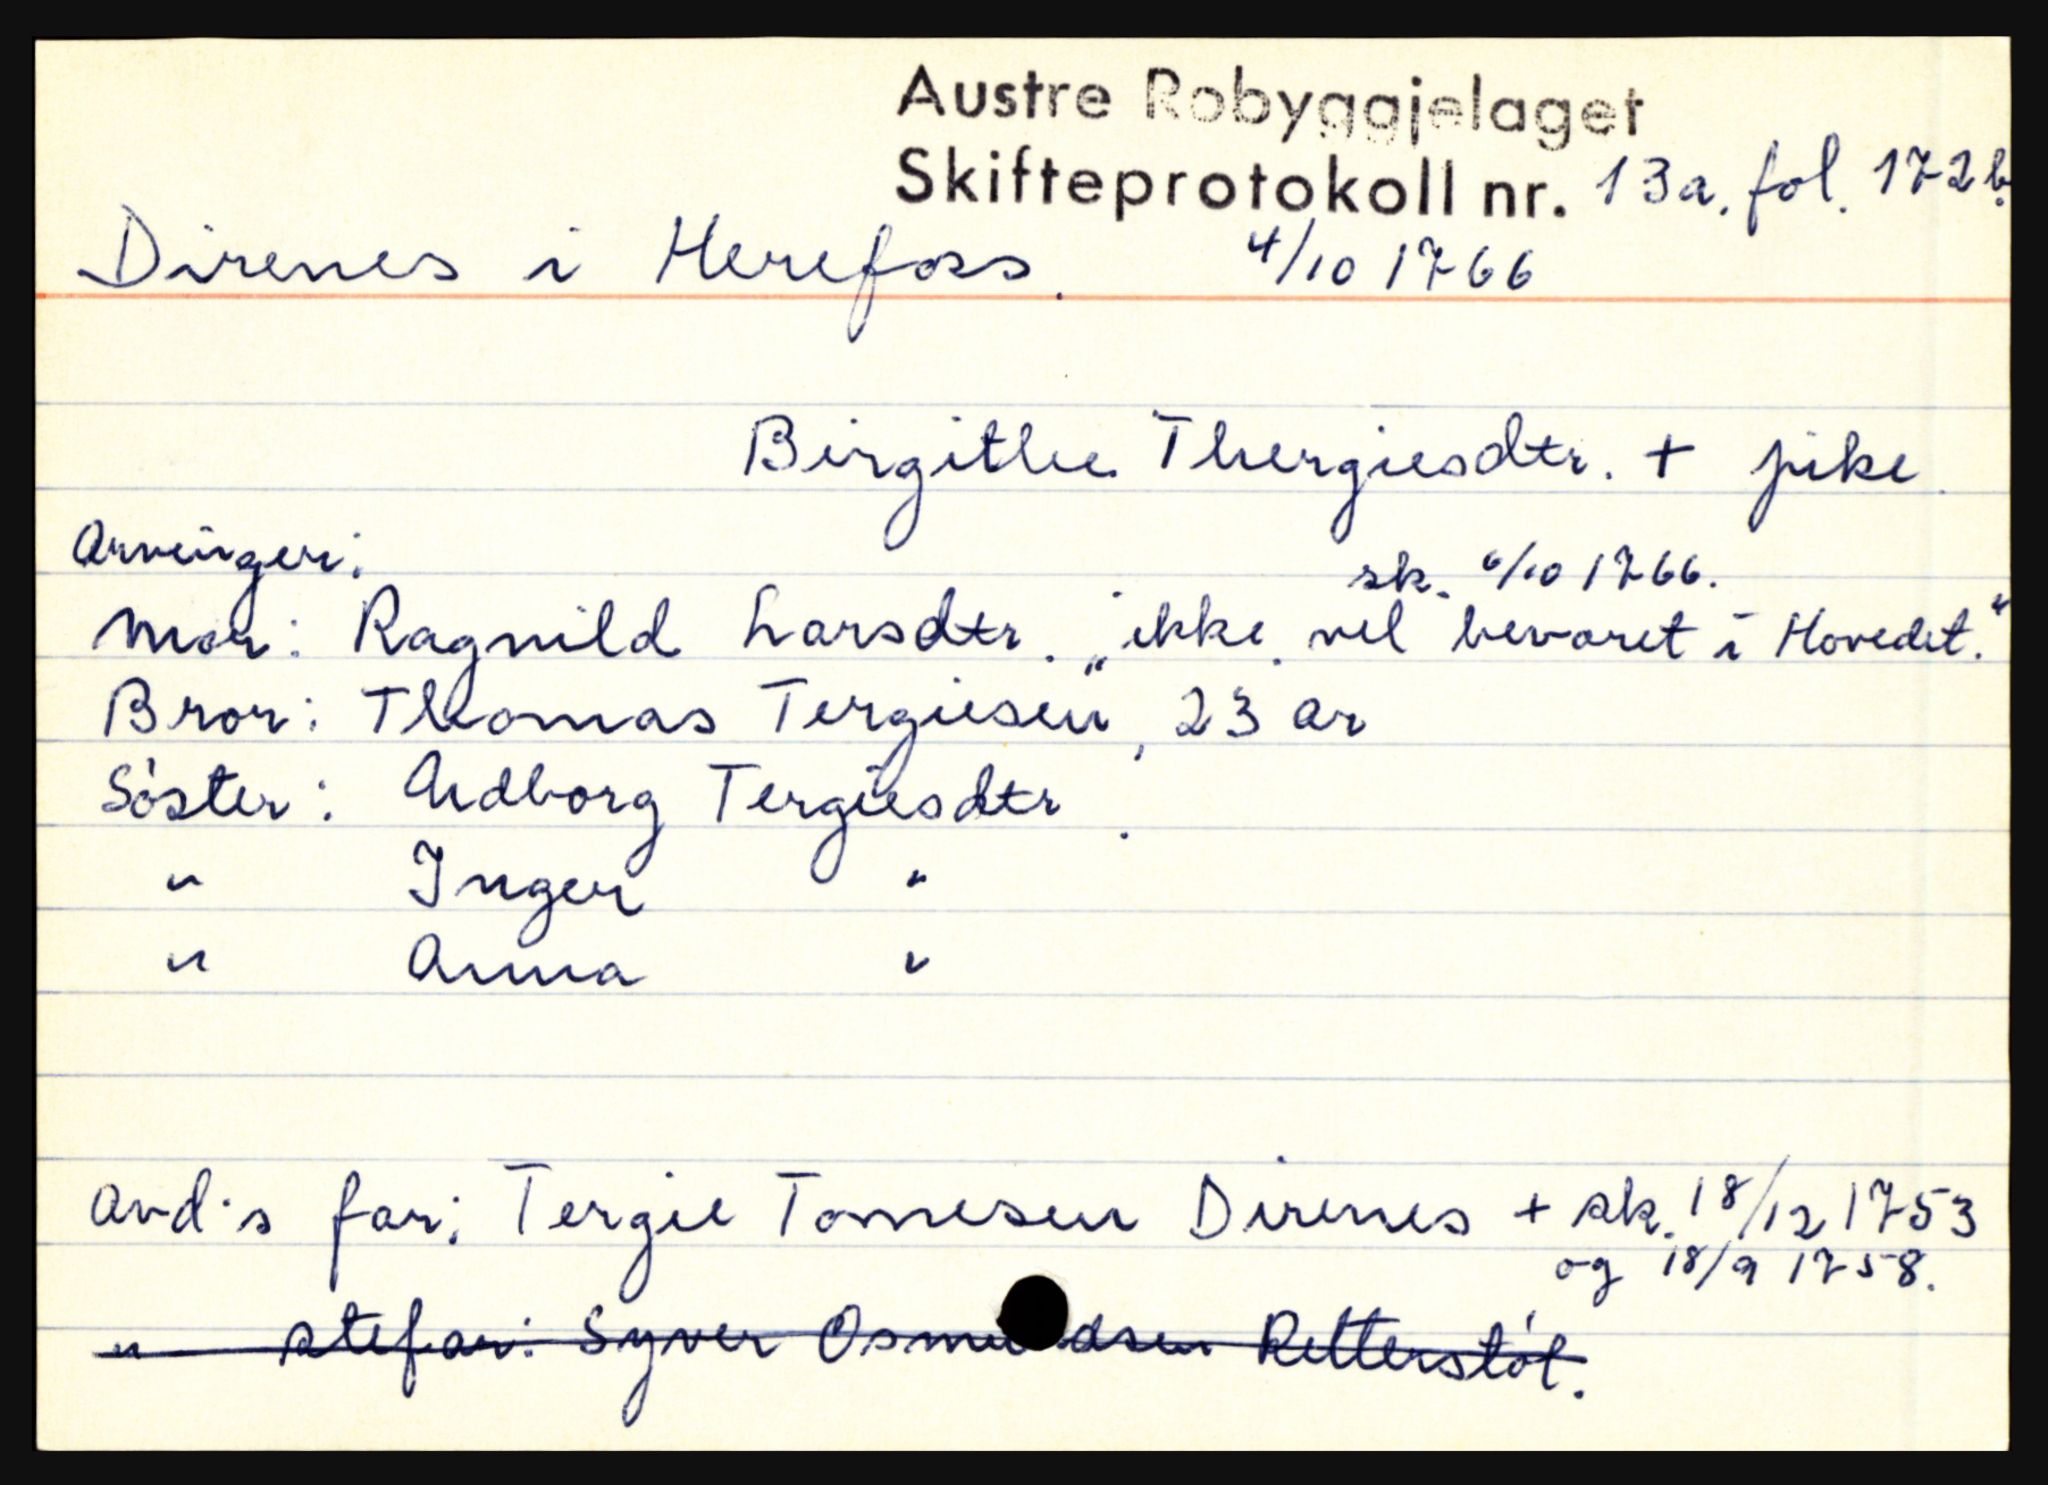 Austre Robyggjelaget
Skifteprotokoll nr. 13a. fol. 172b.
Direnes i Herefoss. 4/10 1766
Birgithe Thergiesdtr. + pike.
Arvinger:
sk. 6/10 1766.
Mor: Ragnild Larsdtr. „ikke vel bevaret i Hovedet.“
Bror: Thomas Tergiesen, 23 år
Söster: Audborg Tergiesdtr.
" Inger "
" Anna "
Avd.s far: Tergie Tomesen Direnes + sk. 18/12 1753
og 18/9 1758.
" stefar: Syver Osmundsen Retterstöl.